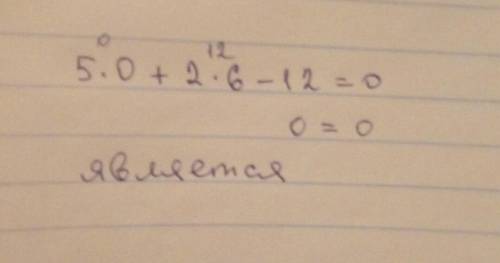 0 12
5·0 + 2·6 - 12 = 0
0 = 0
является